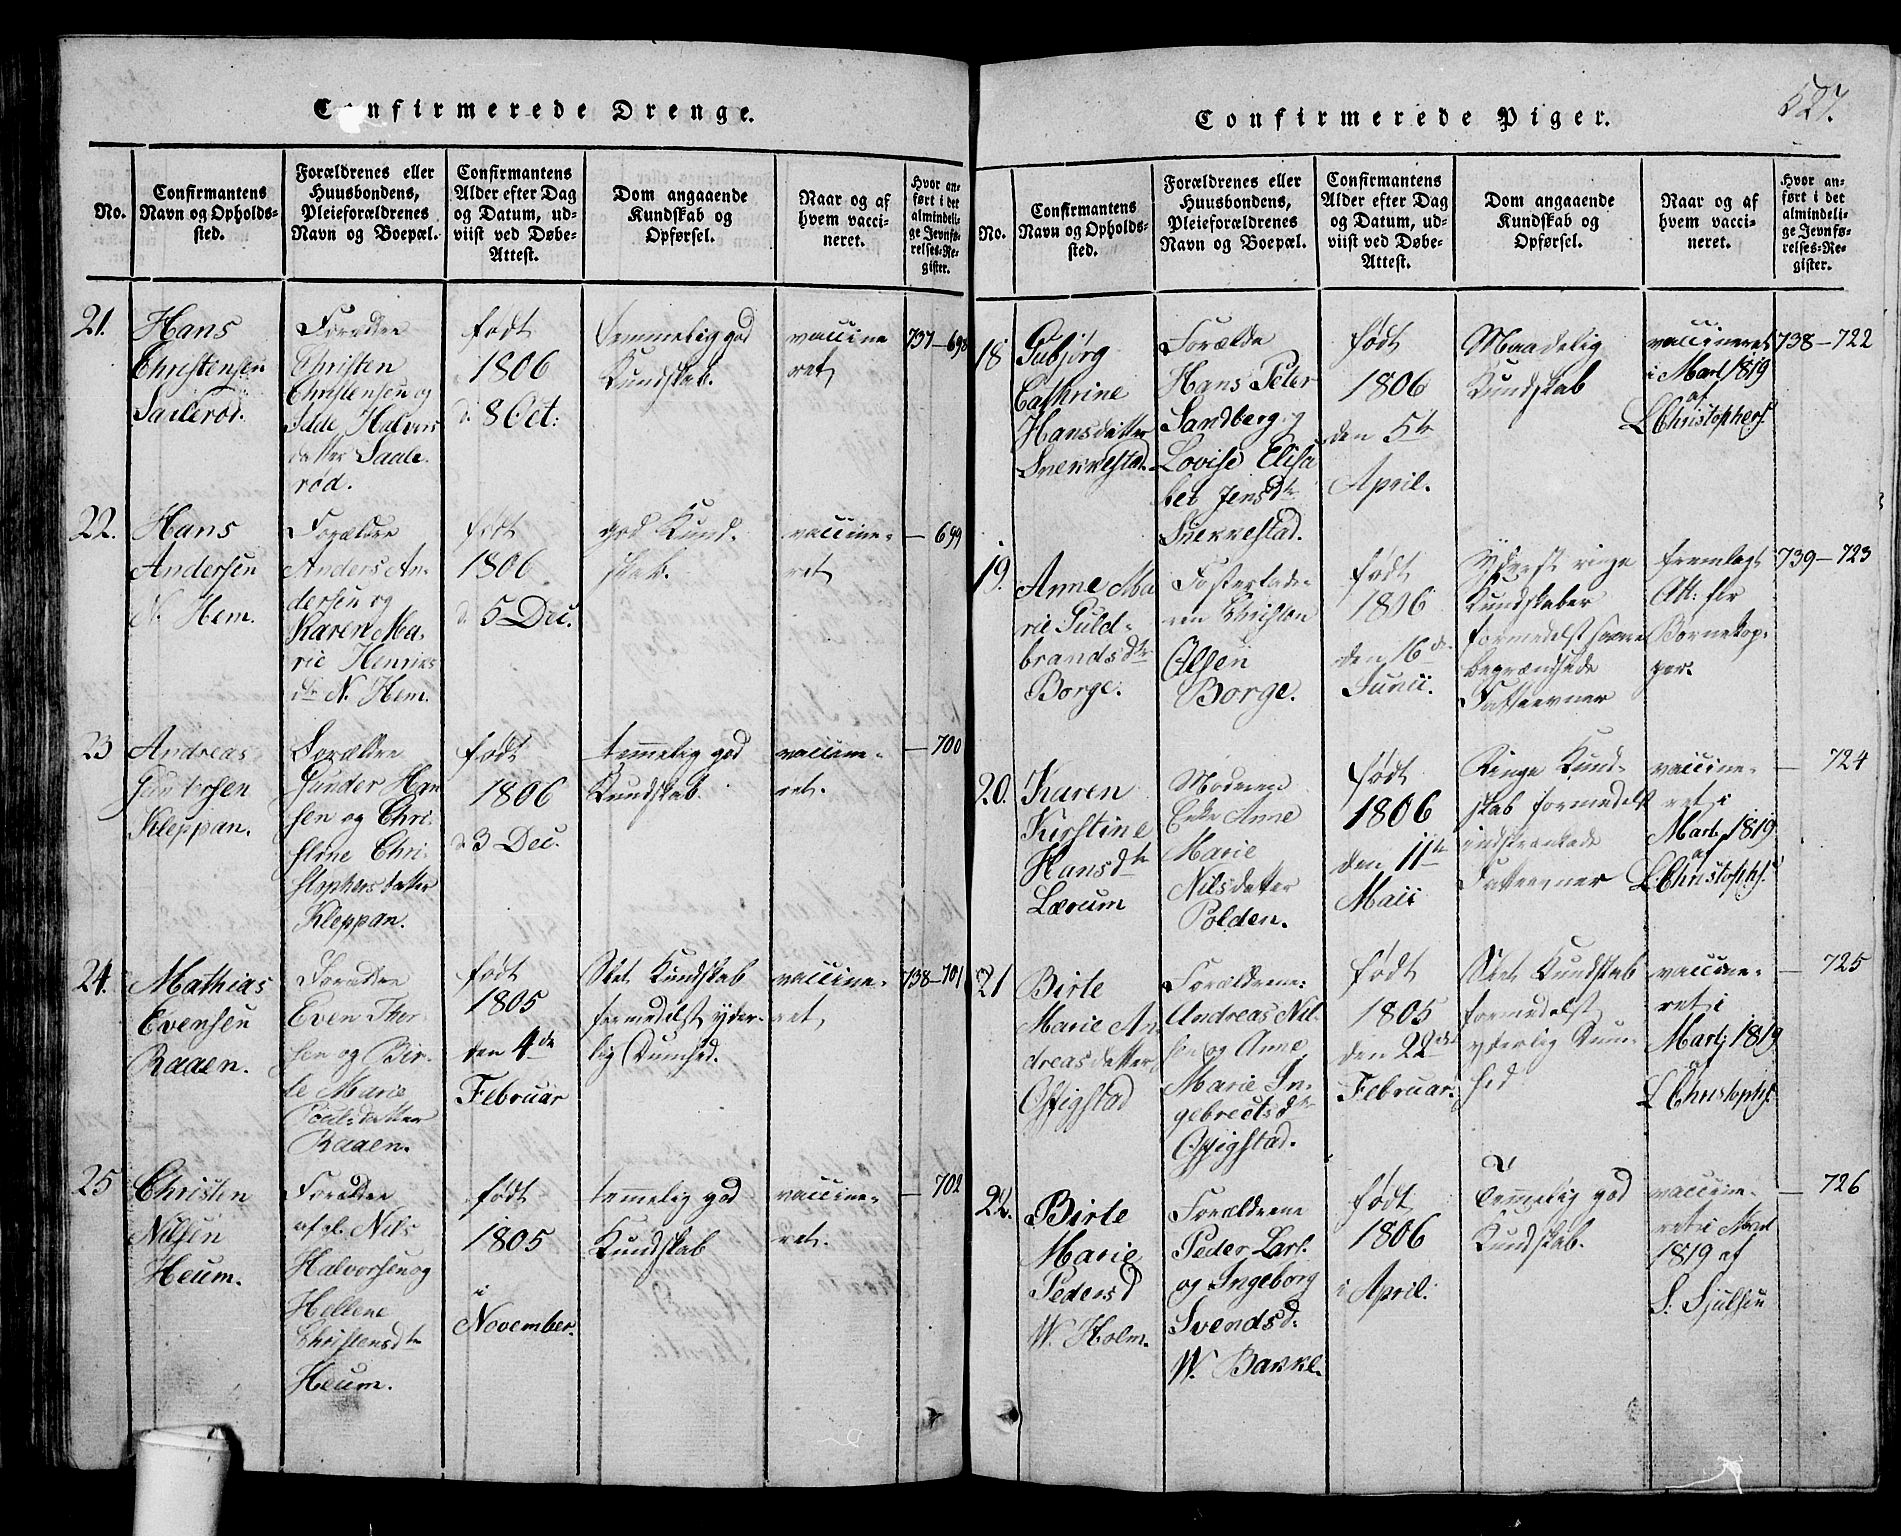 Confirmerede Drenge.
No.
Confirmantens
Navn og Opholds-
sted.
Forældrenes eller
Huusbondens,
Pleieforældrenes
Navn og Boepæl.
Confirmantens
Alder efter Dag
og Datum, ud-
viist ved Døbe-
Attest.
Dom angaaende
Kundskab og
Opførsel.
Naar og af
hvem vacci-
neret.
Hvor an-
ført i det
almindeli-
ge Jevnfø-
relses-Re-
gister.
21.
Hans
Christensen
Sailerød.
Forældre
Christen
Christensen og
Idde Halvors
datter Saale-
rød.
født
1806
d. 8 Oct:
temmelig god
Kundskab.
vaccine
ret
737—698
22.
Hans
Andersen
N. Hem.
Forældre
Anders An-
dersen og
Karen Ma-
rie Henriks
dr N. Hem.
født
1806
d. 5 Dec.
god Kund-
skab.
vaccine-
ret
— 699
23
Andreas
Gundersen
Kleppan.
Forældre
Gunder Han
sen og Chri-
stine Chri-
stophersdatter
Kleppan.
født
1806
d 3 Dec.
temmelig god
Kundskab.
vaccine-
ret.
— 700
24.
Mathias
Evensen
Raaen.
Forældre
Even Thor-
sen og Bir-
te Marie
Poulsdatter
Raaen.
født
1805
den 4de
Februar
Slet Kundskab
formedelst yder-
lig Dumhed.
vaccine-
ret
738—701
25
Christen
Nilsen
Heum.
Forældre
af gl. Nils
Halvorsen og
Hellene
Christensdtr
Heum.
født
1805
i
November.
temelig god
Kundskab
vaccine-
ret.
— 702
527.
Confirmerede Piger.
No.
Confirmantens
Navn og Opholds-
sted.
Forældrenes eller
Huusbondens,
Pleieforældrenes
Navn og Boepæl.
Confirmantens
Alder efter Dag
og Datum, ud-
viist ved Døbe-
Attest.
Dom angaaende
Kundskab og
Opførsel.
Naar og af
hvem vacci-
neret.
Hvor an-
ført i det
almindeli-
ge Jevnfø-
relses-Re-
gister.
18
Gubjörg
Cathrine
Hansdatter
Snekkestad.
Forælde
Hans Peter
Sandberg og
Lovise Elisa
bet Jensdtr
Snekkestad.
født
1806
den 5te
April.
Maadelig
Kundskab
vaccineret
i Mart 1819
af
L Christophers.
738—722
19.
Anne Ma
rie Guld-
brandsdtr
Borge.
Fosterfade-
ren Christen
Olsen
Borge.
født
1806
den 16de
Junii.
Yderst ringe
Kundskaber
formedelst saare
begrændsede
Fatteevner
fremlagt
Att: for
Børnekop-
per.
739—723
20.
Karen
Kirstine
Hansdtr
Lærum
Moderen
Enke Anne
Marie
Nilsdatter
Polden.
født
1806
den 11te
Maii
Ringe Kund-
skab formedelst
indskrænkede
Fatteevner
vaccine-
ret i
Martj 1819
af
L. Christophs.
— 724
21
Birte
Marie An
dreasdatter
Ofsigstad
Forældrene
Andreas Nil-
sen og Anne
Marie In-
gebrectsdtr
Ofsigstad.
født
1805
den 22de
Februar.
Slet Kundskab
formedelst
yderlig Dum-
hed
vaccine-
ret i
Martj 1819
af
L Christophs.
— 725
22.
Birte
Marie
Pedersd
W. Holm.
Forældrene
Peder Lars.
og Ingeborg
Svendsd.
W. Bakke.
født
1806
i April.
Temmelig god
Kundskab.
vaccine-
ret i Mart
1819 af
S. Sjulsen
— 726